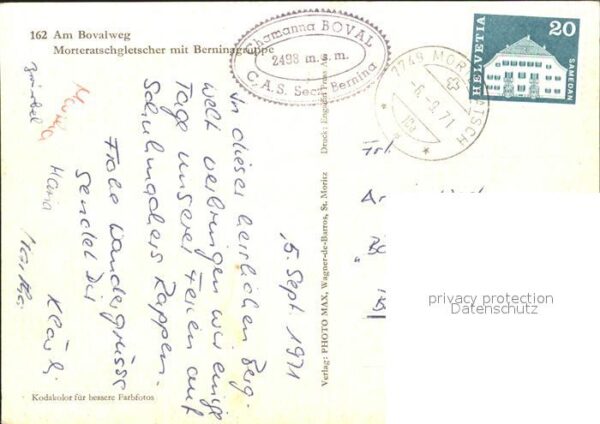 162 Am Bovalweg
Morteratschgletscher mit Berninagruppe
Chamanna BOVAL
2498 m. s. m.
C.A.S. Sect. Bernina
7749 MORTERATSCH
-6.-9.71
HELVETIA
20
SAMEDAN
5. Sept 1971
In dieser herrlichen Berg-
welt verbringen wir einige
Tage unserer Ferien auf
Schuhmachers Rappen.
Frohe Wandergrüsse
sendet Dir
Klärli
Maria
Martha
Verlag: PHOTO MAX, Wagner-de-Barros, St. Moritz
Druck: Engadin Press
Kodakolor für bessere Farbfotos
Frl.
privacy protection
Datenschutz